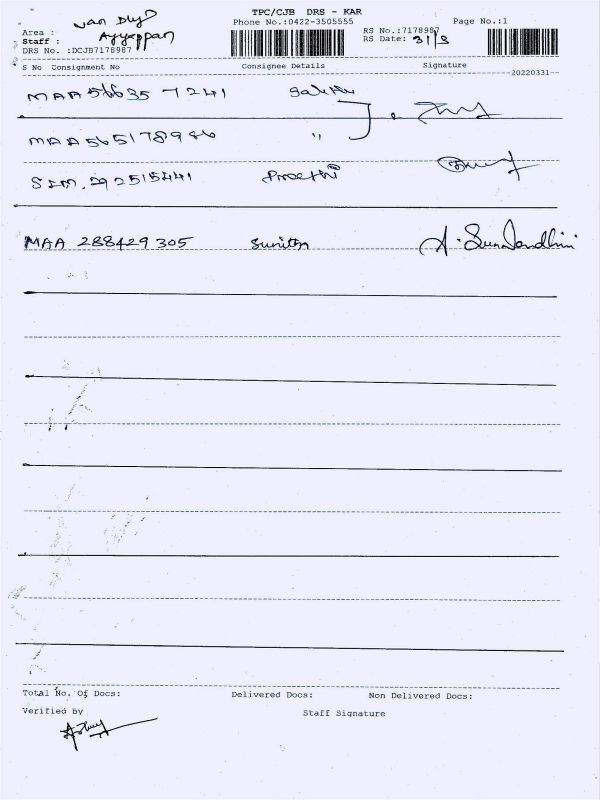 TPC/CJB DRS - KAR
Phone No.:0422-3505555
Page No.:1
Area : Van Dly
Staff : Ayyappan
DRS No. :DCJB7178987
RS No.:7178987
RS Date: 31/3
S No Consignment No Consignee Details Signature
20220331
MAA 56635 7241
MAA 565178986 "
SIM. 292515441 Preethi
MAA 288429305 Sunitha
Total No. Of Docs: Delivered Docs: Non Delivered Docs:
Verified By Staff Signature